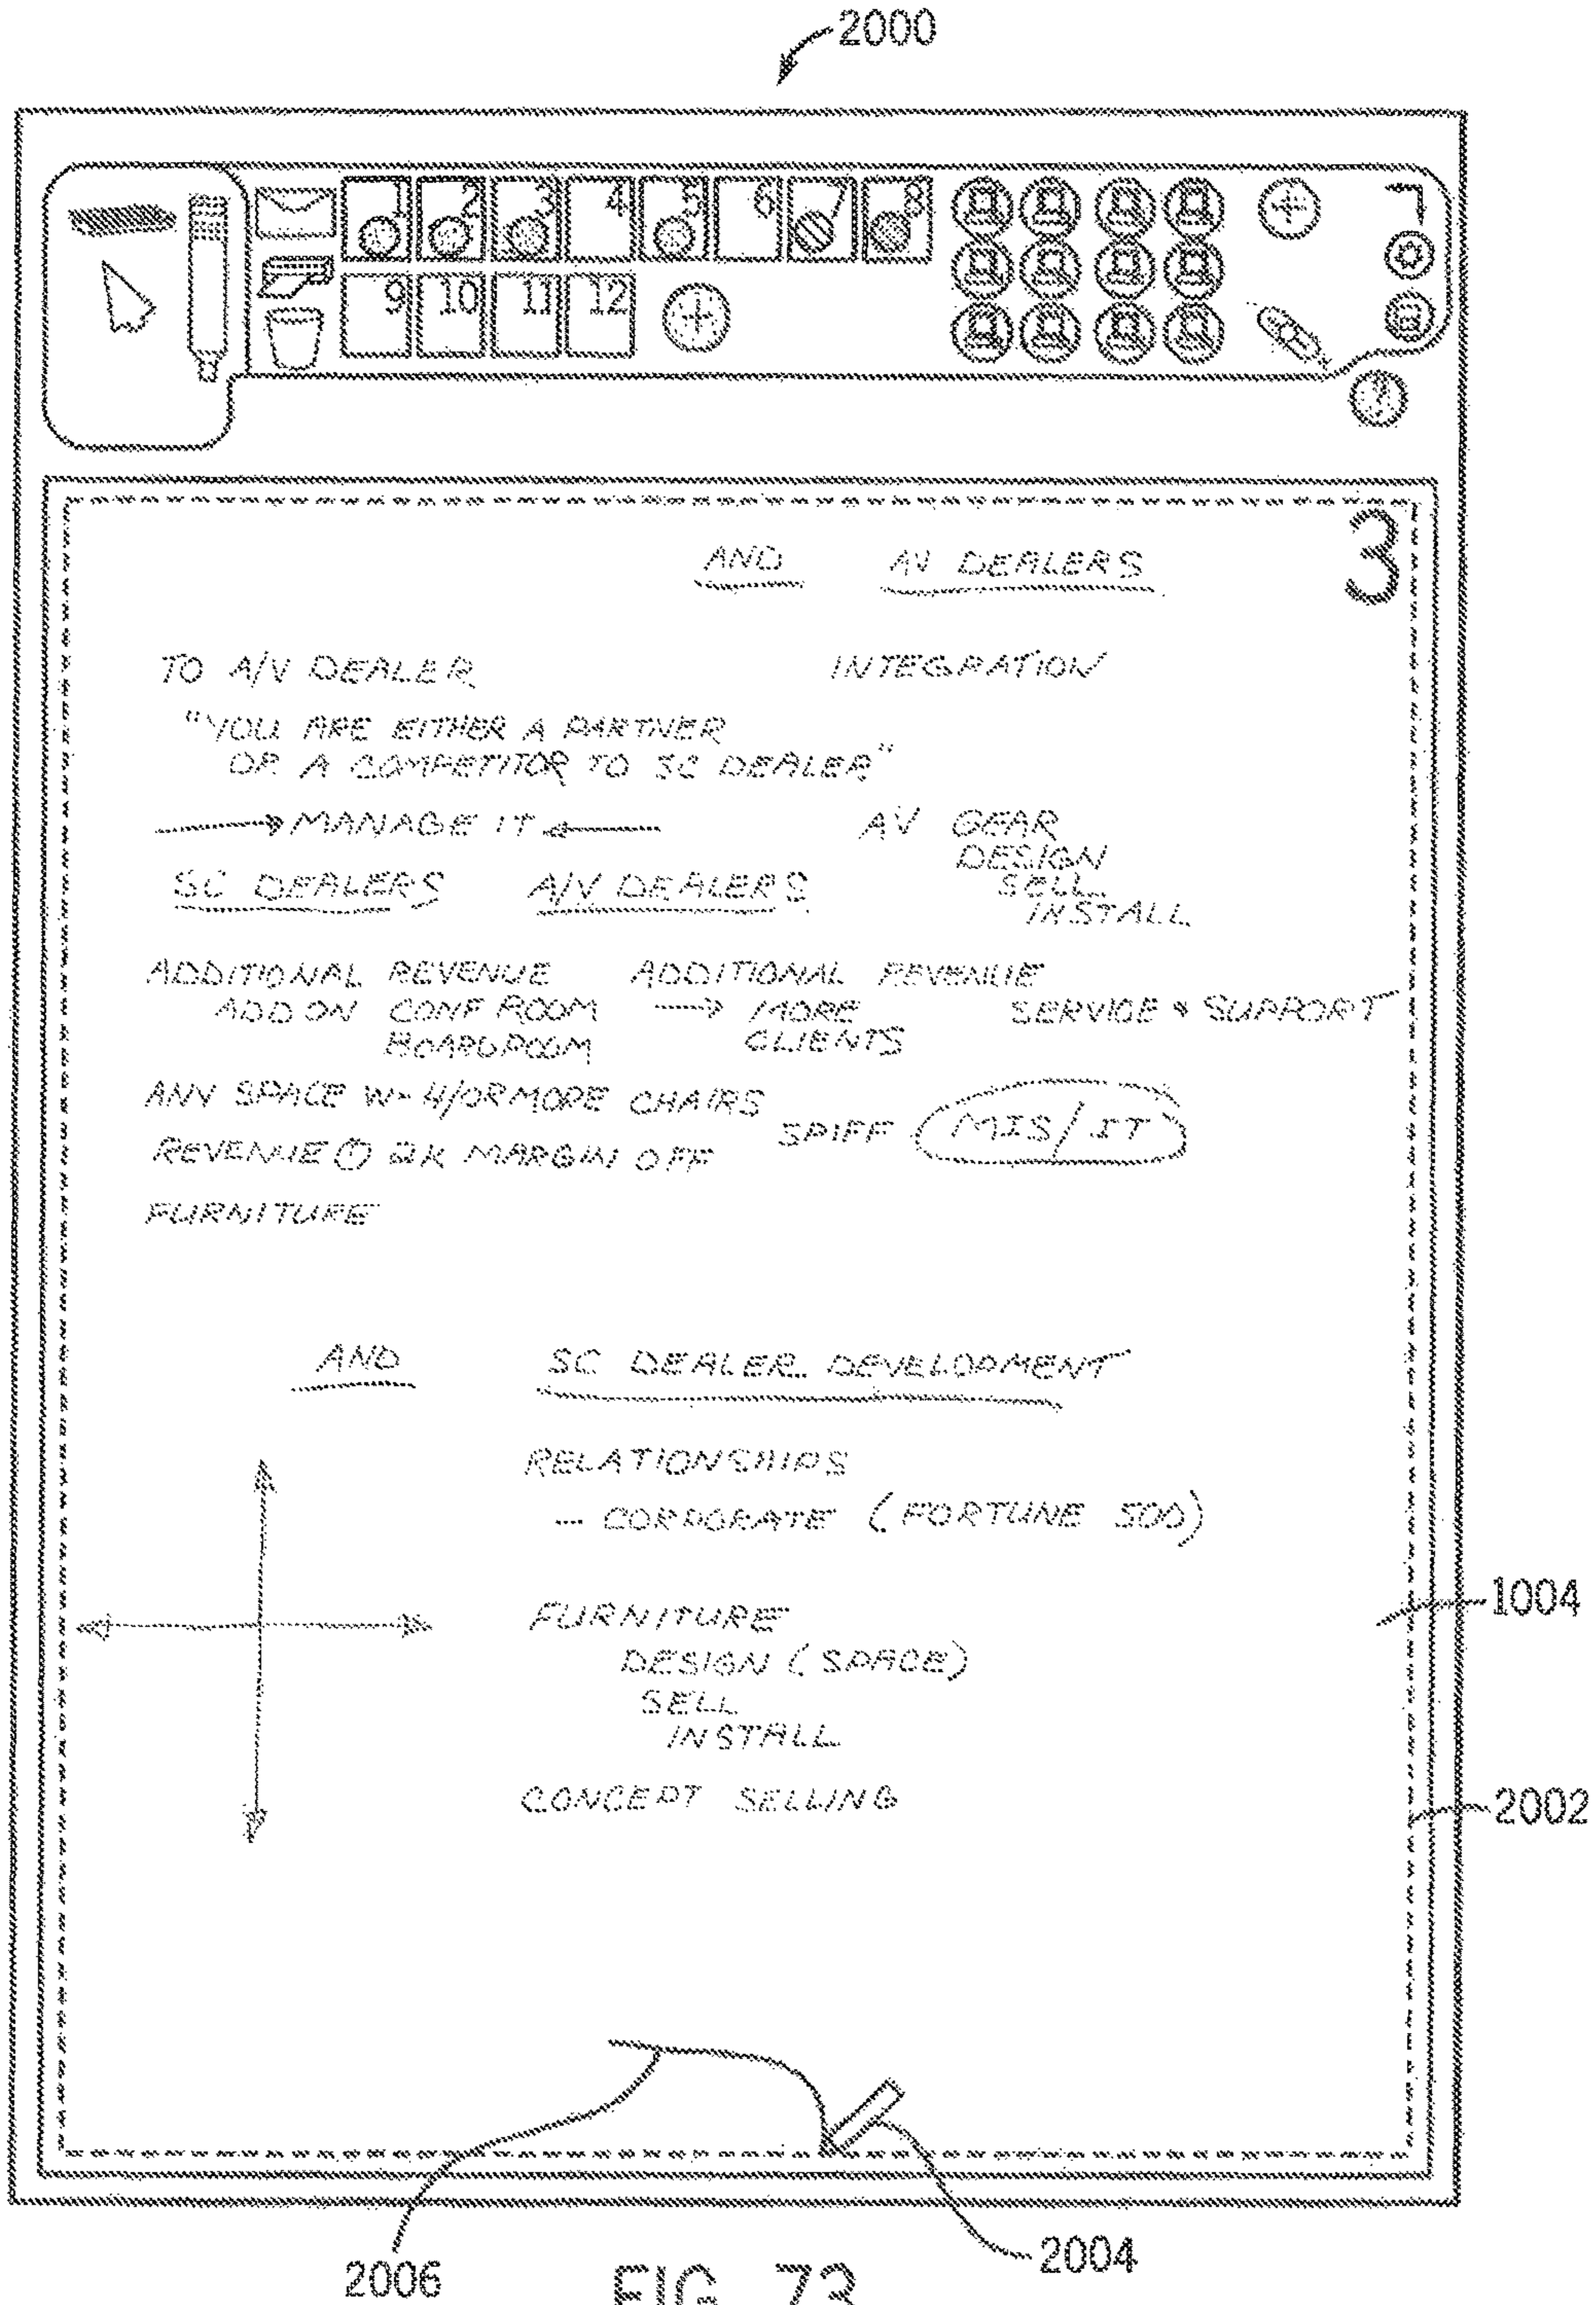 2000
1 2 3 4 5 6 7 8
9 10 11 12
?
3
AND AV DEALERS
TO A/V DEALER INTEGRATION
"YOU ARE EITHER A PARTNER
OR A COMPETITOR TO SC DEALER"
MANAGE IT AV GEAR
DESIGN
SELL
INSTALL
SC DEALERS A/V DEALERS
ADDITIONAL REVENUE ADDITIONAL REVENUE
ADD ON CONF ROOM MORE SERVICE & SUPPORT
BOARDROOM CLIENTS
ANY SPACE W- 4/OR MORE CHAIRS
SPIFF MIS/IT
REVENUE 2K MARGIN OFF
FURNITURE
AND SC DEALER DEVELOPMENT
RELATIONSHIPS
- CORPORATE (FORTUNE 500)
FURNITURE
DESIGN (SPACE)
SELL
INSTALL
CONCEPT SELLING
1004
2002
2006
2004
FIG. 73